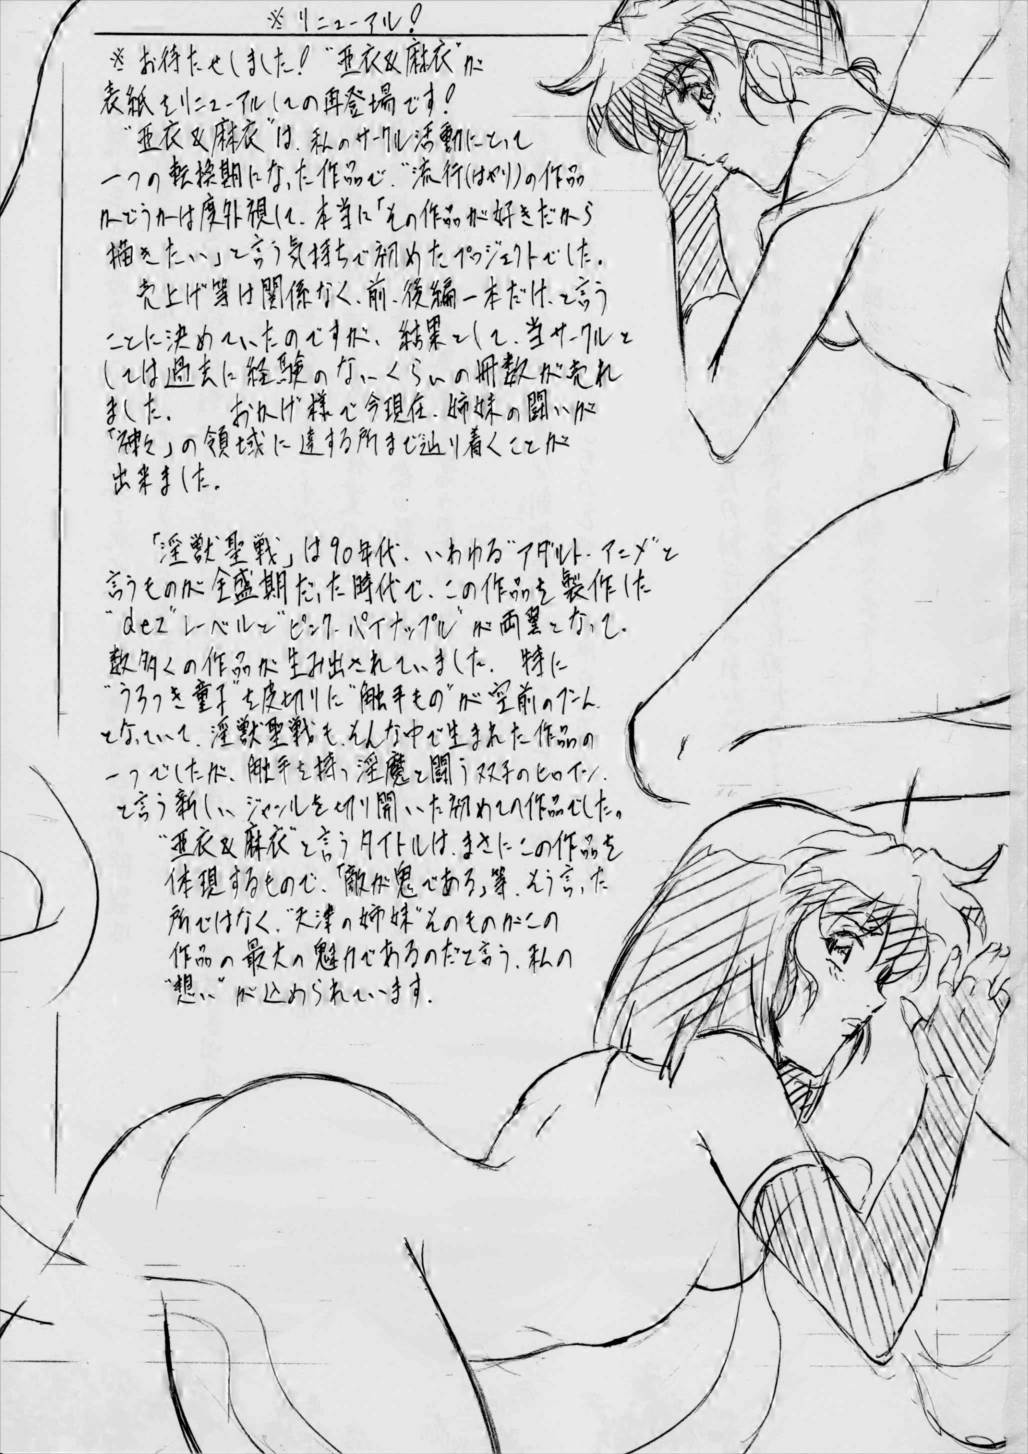 ※リニューアル!
※お待たせしました!"亜衣&麻衣"が
表紙をリニューアルしての再登場です!
"亜衣&麻衣"は、私のサークル活動にとって
一つの転換期になった作品で、"流行(はやり)の作品
かどうかは度外視して、本当に「その作品が好きだから
描きたい」と言う気持ちで初めたプロジェクトでした。
売上げ等は関係なく、前、後編一本だけ、と言う
ことに決めていたのですが、結果として、当サークルと
しては過去に経験のないくらいの冊数が売れ
ました。 おかげ様で今現在、姉妹の闘いが
「神々」の領域に達する所まで辿り着くことが
出来ました。
「淫獣聖戦」は90年代、いわゆる"アダルト・アニメ"と
言うものが全盛期だった時代で、この作品を製作した
"dez"レーベルと"ピンクパイナップル"が両翼となって、
数多くの作品が生み出されていました。特に
"うろつき童子"を皮切りに"触手もの"が空前のブーム
となっていて、淫獣聖戦も、そんな中で生まれた作品の
一つでしたが、触手を持つ淫魔と闘う双子のヒロイン、
と言う新しいジャンルを切り開いた初めての作品でした。
"亜衣&麻衣"と言うタイトルは、まさにこの作品を
体現するもので、「敵が鬼である」等、そう言った
所ではなく、"天津の姉妹"そのものがこの
作品の最大の魅力であるのだと言う、私の
"想い"が込められています。